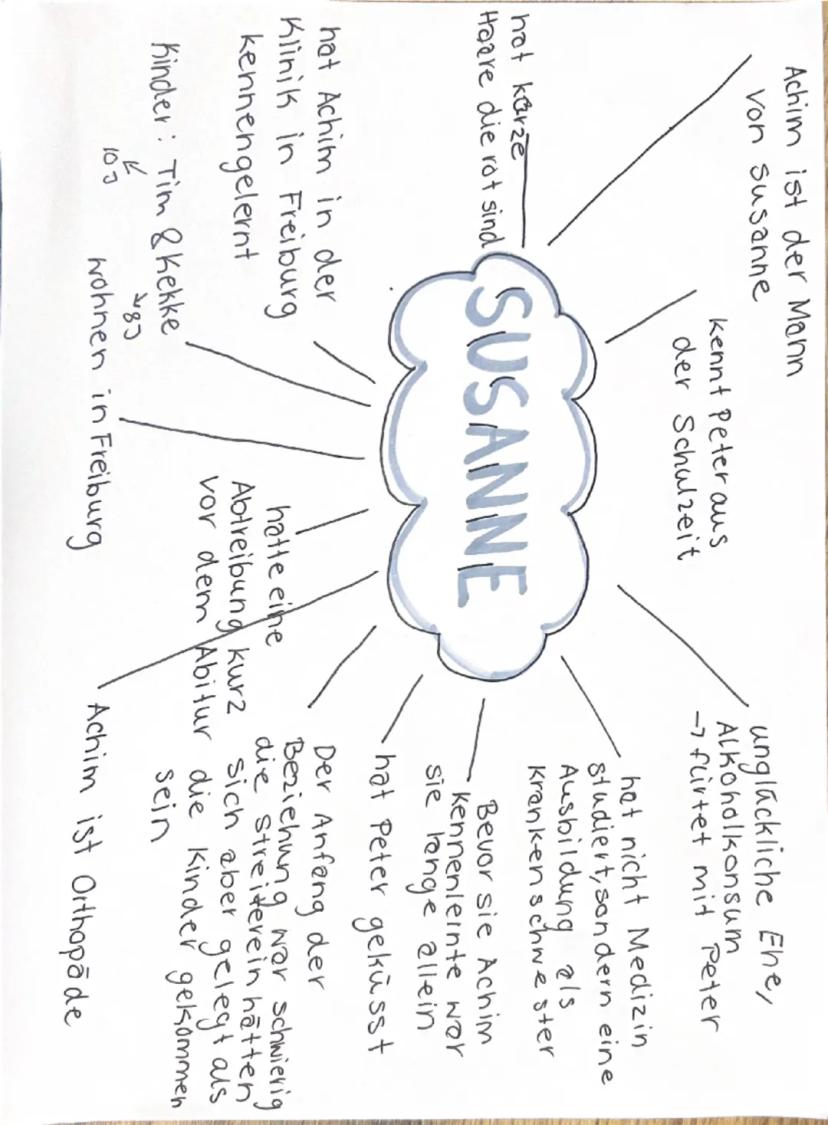 Achim ist der Mann
von Susanne
kennt Peter aus
der Schulzeit
unglückliche Ehe,
Alkoholkonsum
→ flirtet mit Peter
hat kurze
Haare die rot sind
SUSANNE
hat nicht Medizin
studiert, sondern eine
Ausbildung als
Krankenschwester
Bevor sie Achim
kennenlernte war
sie lange allein
hat Peter geküsst
hat Achim in der
Klinik in Freiburg
kennengelernt
Der Anfang der
Beziehung war schwierig
die Streiterein hätten
sich aber gelegt als
die Kinder gekommen
sein
hatte eine
Abtreibung kurz
vor dem Abitur
Kinder: Tim & Kekke
10J
8J
wohnen in Freiburg
Achim ist Orthopäde